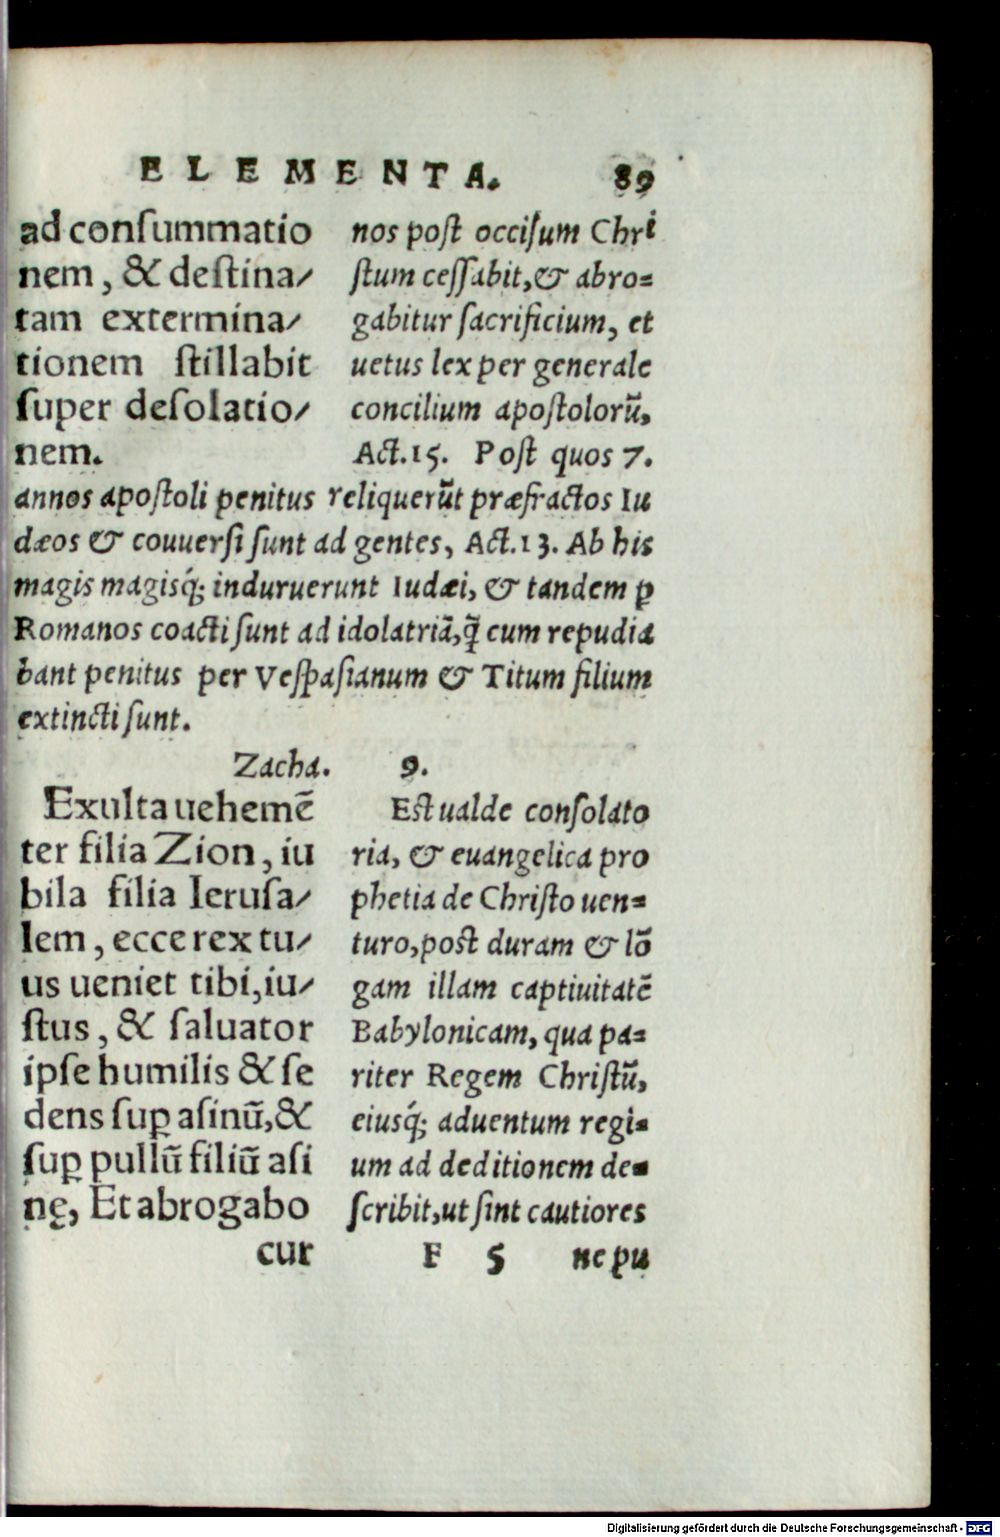 ELEMENTA. 89
ad conſummatio
nem, & deſtina/
tam extermina/
tionem ſtillabit
ſuper deſolatio/
nem.
nos poſt occiſum Chri
ſtum ceſſabit, & abro=
gabitur ſacrificium, et
uetus lex per generale
concilium apoſtolorũ,
Act. 15. Poſt quos 7.
annos apoſtoli penitus reliquerũt præfractos Iu
dæos & couuerſi ſunt ad gentes, Act. 13. Ab his
magis magisq́; induruerunt Iudæi, & tandem ꝑ
Romanos coacti ſunt ad idolatriã, q̃ cum repudia
bant penitus per Veſpaſianum & Titum filium
extincti ſunt.
Zacha. 9.
Exulta uehemẽ
ter filia Zion, iu
bila filia Ieruſa/
lem, ecce rex tu/
us ueniet tibi, iu/
ſtus, & ſaluator
ipſe humilis & ſe
dens ſuꝑ aſinũ, &
ſuꝑ pullũ filiũ aſi
nę, Et abrogabo
cur
Eſt ualde conſolato
ria, & euangelica pro
phetia de Chriſto uen=
turo, poſt duram & lõ
gam illam captiuitatẽ
Babylonicam, qua pa=
riter Regem Chriſtũ,
eiusq́; aduentum regi=
um ad deditionem de=
ſcribit, ut ſint cautiores
F 5 ne pu
Digitalisierung gefördert durch die Deutsche Forschungsgemeinschaft - DFG